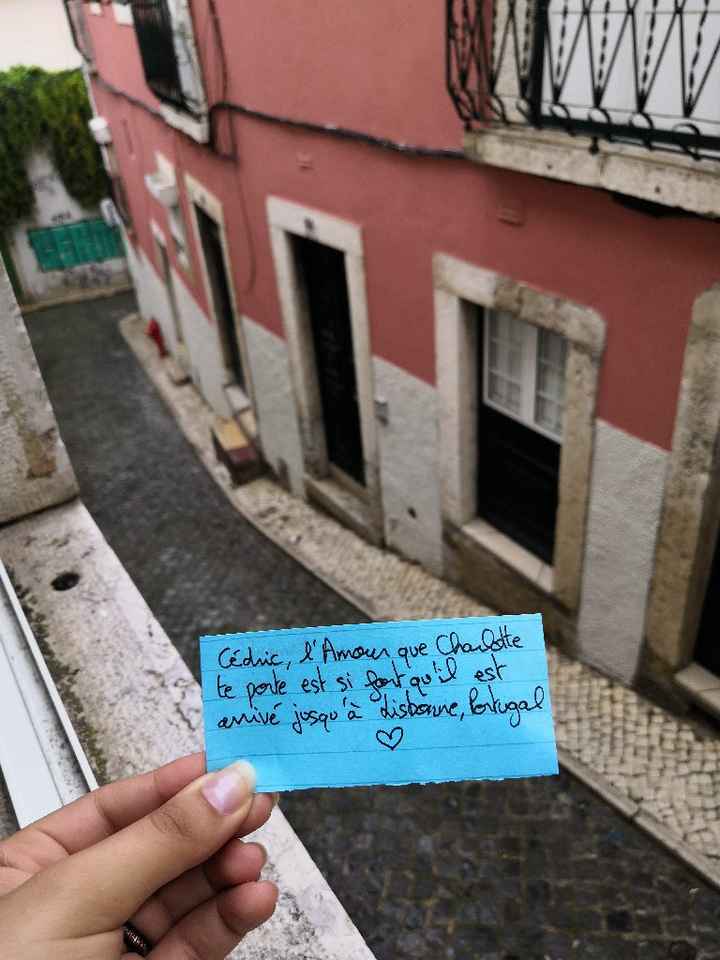 Cédric, l'Amour que Charlotte
te porte est si fort qu'il est
arrivé jusqu'à Lisbonne, Portugal
♡